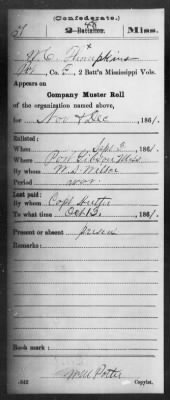 (Confederate.)
2 Battalion. 48 Miss.
W. C. Thompkins
Co. F, 2 Batt'n Mississippi Vols.
Appears on
Company Muster Roll
of the organization named above,
for Nov & Dec, 1861.
Enlisted:
When Sept 3, 1861.
Where Port Gibson Miss
By whom W. S. Wilson
Period war
Last paid:
By whom Capt
To what time Oct 13, 1861.
Present or absent present
Remarks:
Book mark:
(642) Copyist.